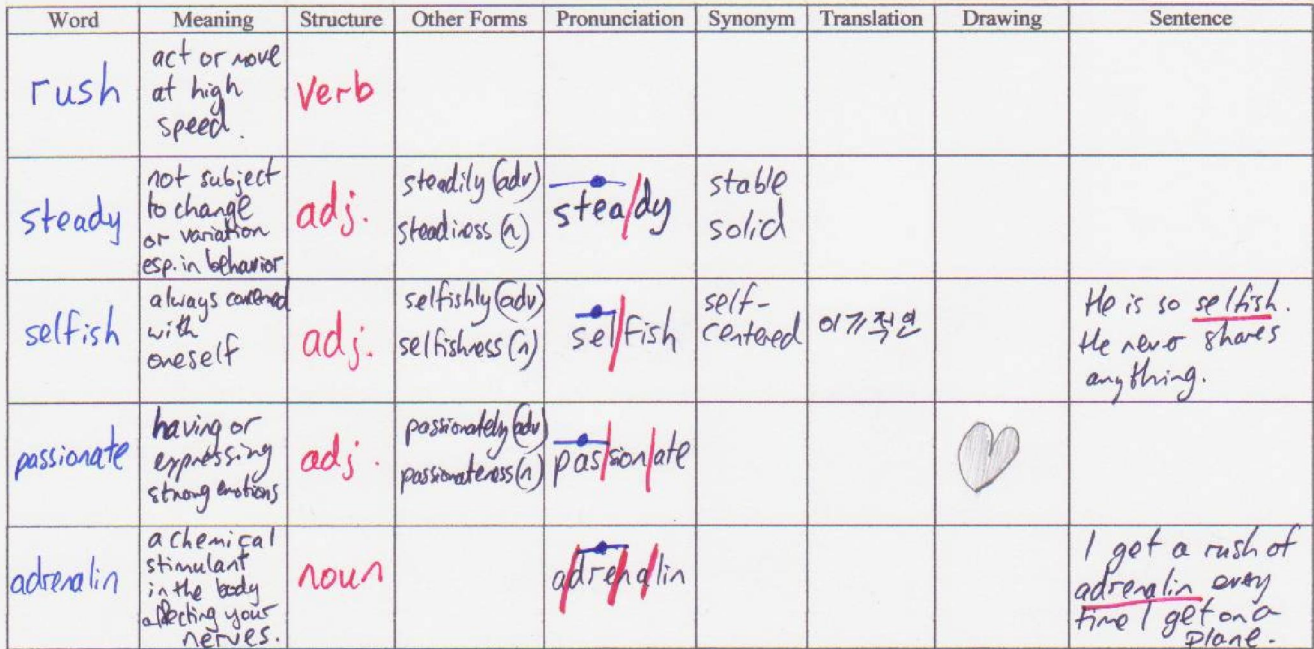 Word Meaning Structure Other Forms Pronunciation Synonym Translation Drawing Sentence
rush
act or move
at high
speed.
verb
steady
not subject
to change
or variation
esp. in behavior
adj.
steadily (adv)
steadiness (n)
stea/dy
stable
solid
selfish
always
with
oneself
adj.
selfishly (adv)
selfishness (n)
sel/fish
self-
centered
이기적인
He is so selfish.
He never shares
anything.
passionate
having or
expressing
strong emotions
adj.
passionately (adv)
passionateness (n)
pas/sion/ate
adrenalin
a chemical
stimulant
in the body
affecting your
nerves.
noun
a/dren/a/lin
I get a rush of
adrenalin every
time I get on a
plane.